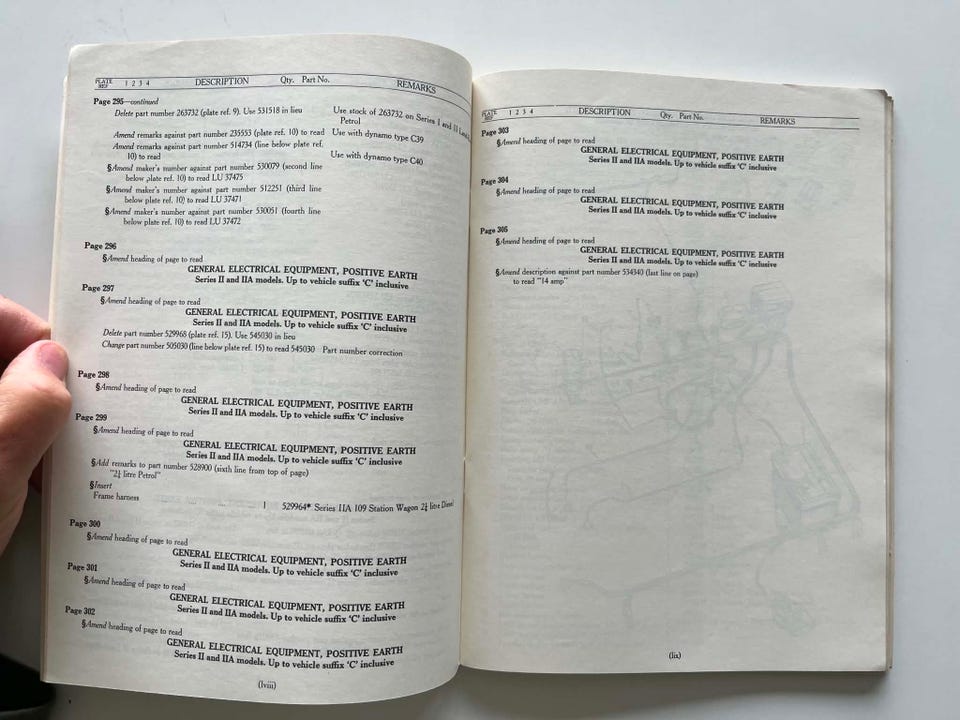 PLATE REF 1 2 3 4 DESCRIPTION Qty. Part No. REMARKS
Page 295—continued
Delete part number 263732 (plate ref. 9). Use 531518 in lieu Use stock of 263732 on Series I and II
Petrol
Amend remarks against part number 235553 (plate ref. 10) to read Use with dynamo type C39
Amend remarks against part number 514734 (line below plate ref.
10) to read Use with dynamo type C40
§Amend maker's number against part number 530079 (second line
below plate ref. 10) to read LU 37475
§Amend maker's number against part number 512251 (third line
below plate ref. 10) to read LU 37471
§Amend maker's number against part number 530051 (fourth line
below plate ref. 10) to read LU 37472
Page 296
§Amend heading of page to read
GENERAL ELECTRICAL EQUIPMENT, POSITIVE EARTH
Series II and IIA models. Up to vehicle suffix 'C' inclusive
Page 297
§Amend heading of page to read
GENERAL ELECTRICAL EQUIPMENT, POSITIVE EARTH
Series II and IIA models. Up to vehicle suffix 'C' inclusive
Delete part number 529968 (plate ref. 15). Use 545030 in lieu
Change part number 505030 (line below plate ref. 15) to read 545030 Part number correction
Page 298
§Amend heading of page to read
GENERAL ELECTRICAL EQUIPMENT, POSITIVE EARTH
Series II and IIA models. Up to vehicle suffix 'C' inclusive
Page 299
§Amend heading of page to read
GENERAL ELECTRICAL EQUIPMENT, POSITIVE EARTH
Series II and IIA models. Up to vehicle suffix 'C' inclusive
§Add remarks to part number 528900 (sixth line from top of page)
"2¼ litre Petrol"
§Insert
Frame harness ... ... ... 1 529964* Series IIA 109 Station Wagon 2¼ litre Diesel
Page 300
§Amend heading of page to read
GENERAL ELECTRICAL EQUIPMENT, POSITIVE EARTH
Series II and IIA models. Up to vehicle suffix 'C' inclusive
Page 301
§Amend heading of page to read
GENERAL ELECTRICAL EQUIPMENT, POSITIVE EARTH
Series II and IIA models. Up to vehicle suffix 'C' inclusive
Page 302
§Amend heading of page to read
GENERAL ELECTRICAL EQUIPMENT, POSITIVE EARTH
Series II and IIA models. Up to vehicle suffix 'C' inclusive
(lviii)
PLATE REF 1 2 3 4 DESCRIPTION Qty. Part No. REMARKS
Page 303
§Amend heading of page to read
GENERAL ELECTRICAL EQUIPMENT, POSITIVE EARTH
Series II and IIA models. Up to vehicle suffix 'C' inclusive
Page 304
§Amend heading of page to read
GENERAL ELECTRICAL EQUIPMENT, POSITIVE EARTH
Series II and IIA models. Up to vehicle suffix 'C' inclusive
Page 305
§Amend heading of page to read
GENERAL ELECTRICAL EQUIPMENT, POSITIVE EARTH
Series II and IIA models. Up to vehicle suffix 'C' inclusive
§Amend description against part number 534340 (last line on page)
to read "14 amp"
(lix)